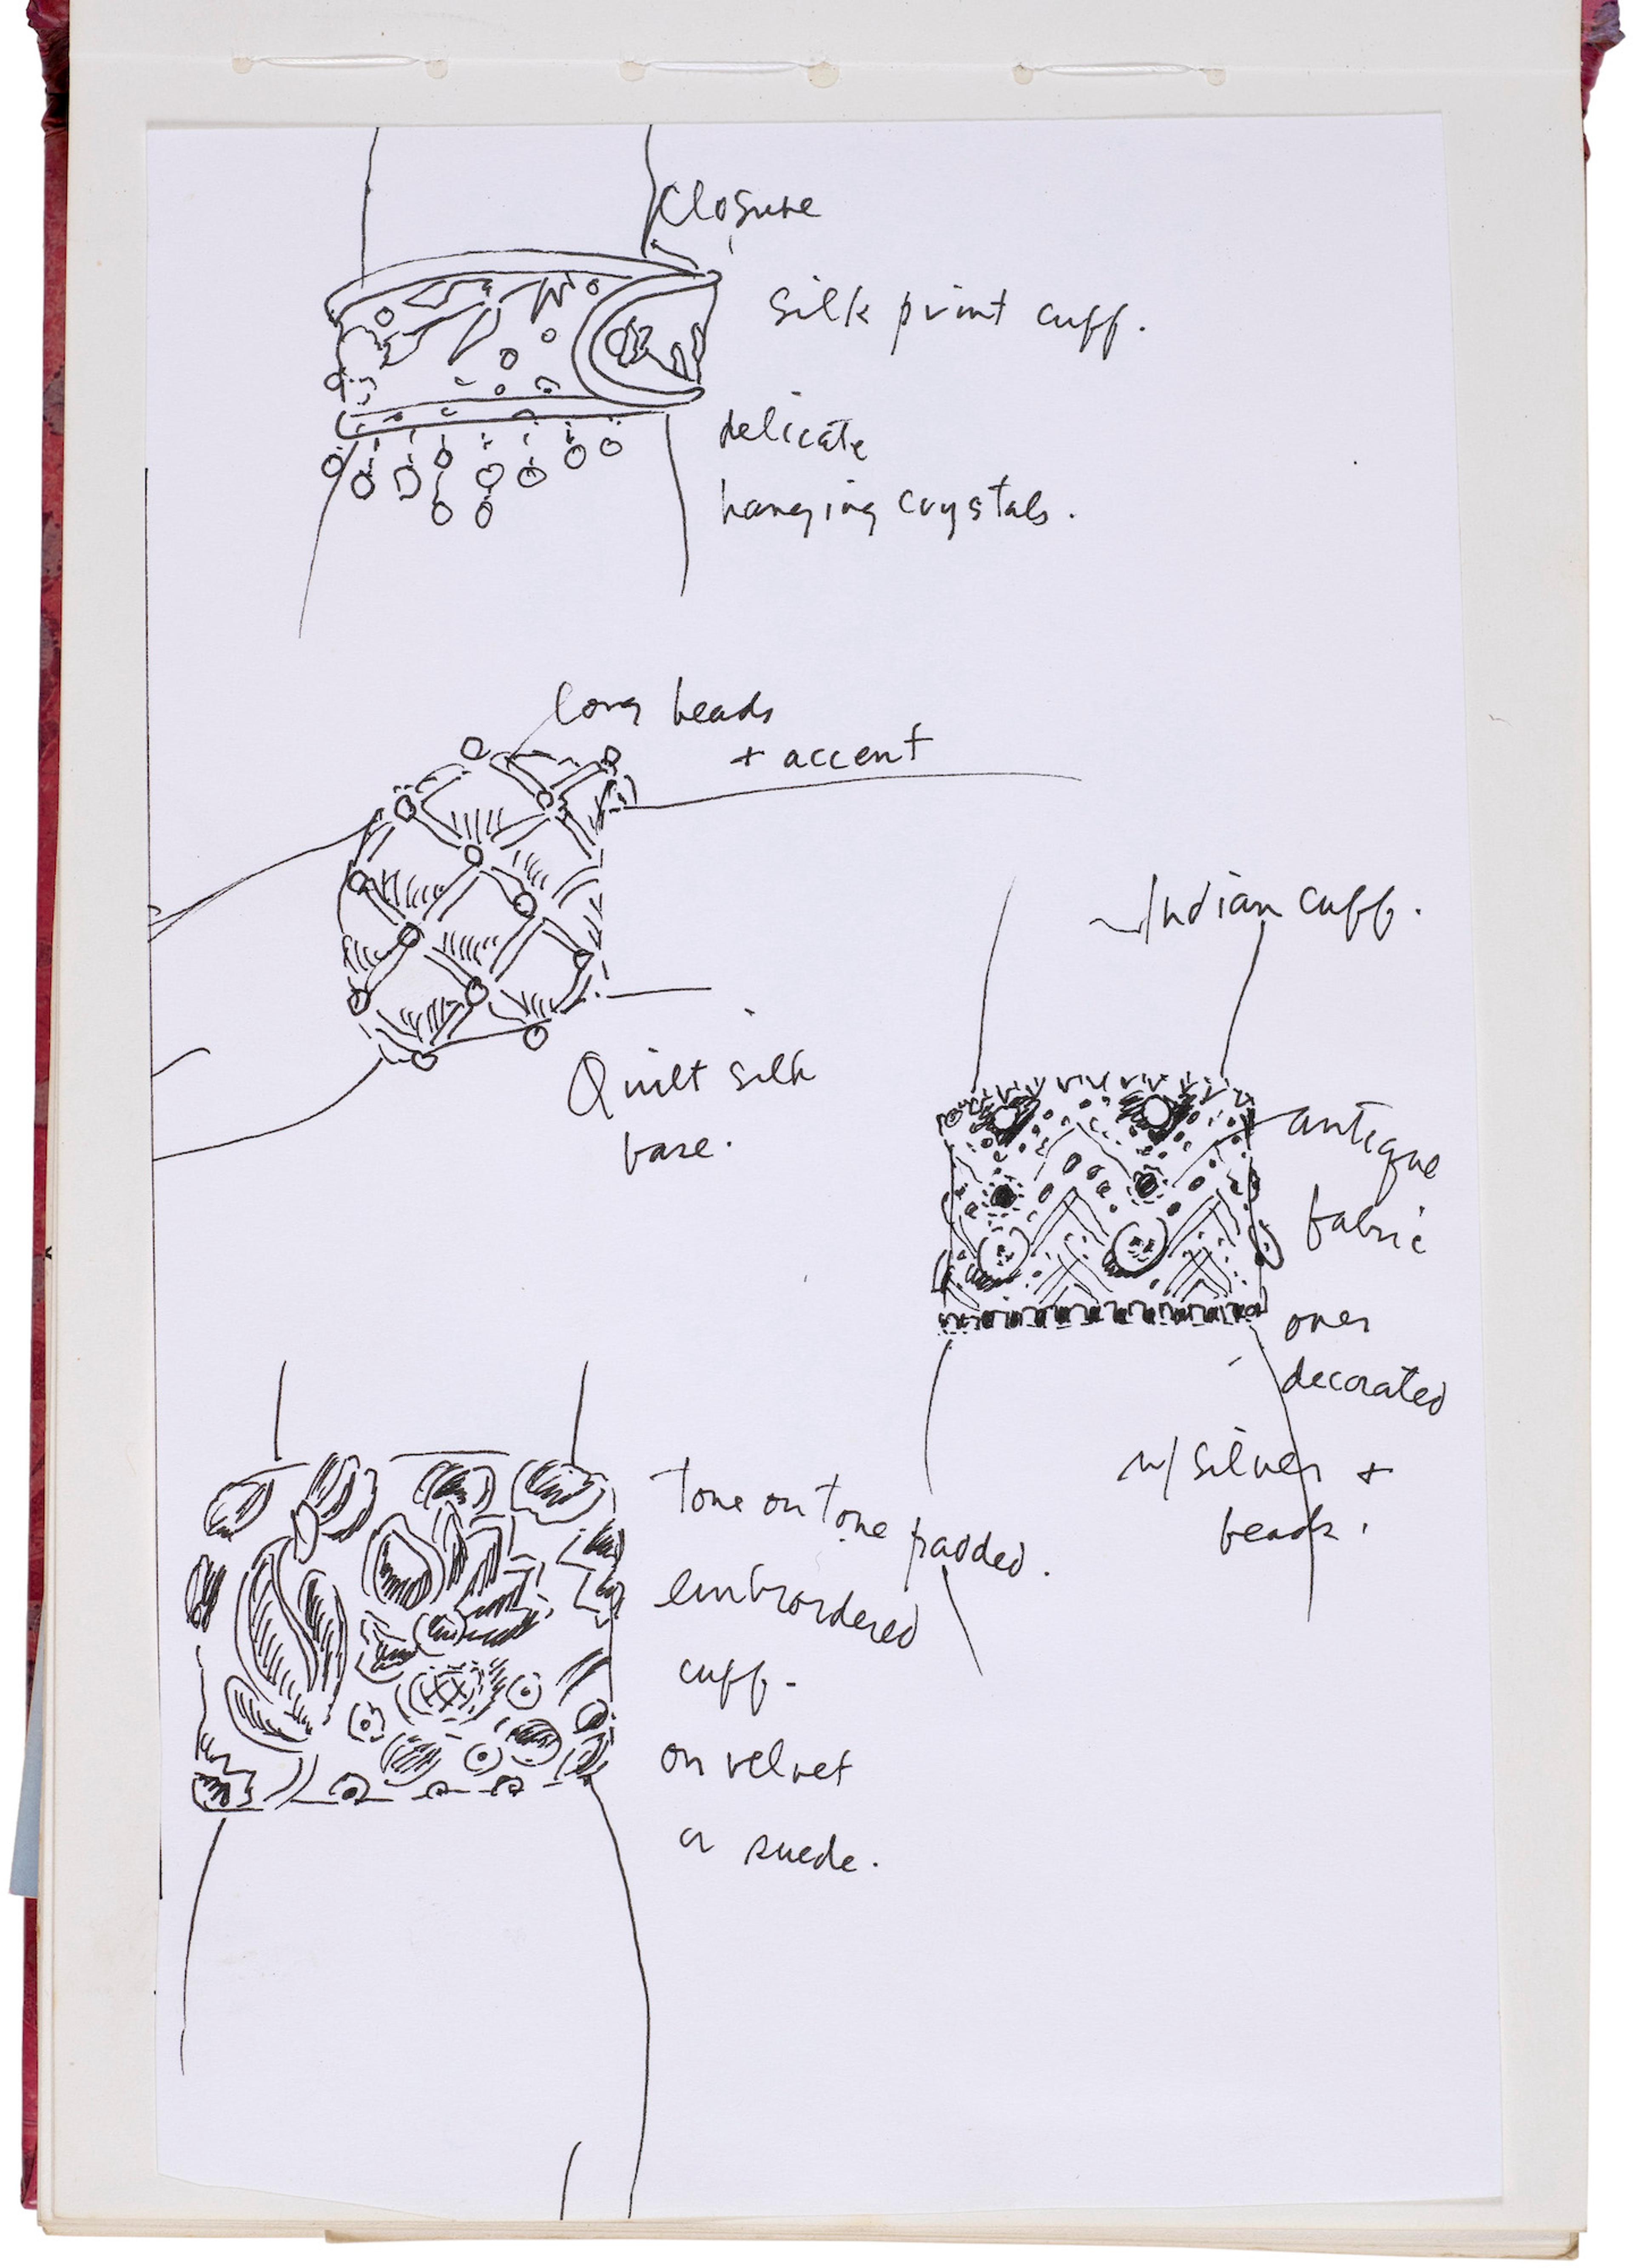 closure
silk print cuff.
delicate
hanging crystals.
long beads
+ accent
Quilt silk
base.
Indian cuff.
antique
fabric
over
decorated
w/ silver +
beads.
tone on tone padded.
embrordered
cuff.
on velvet
or suede.